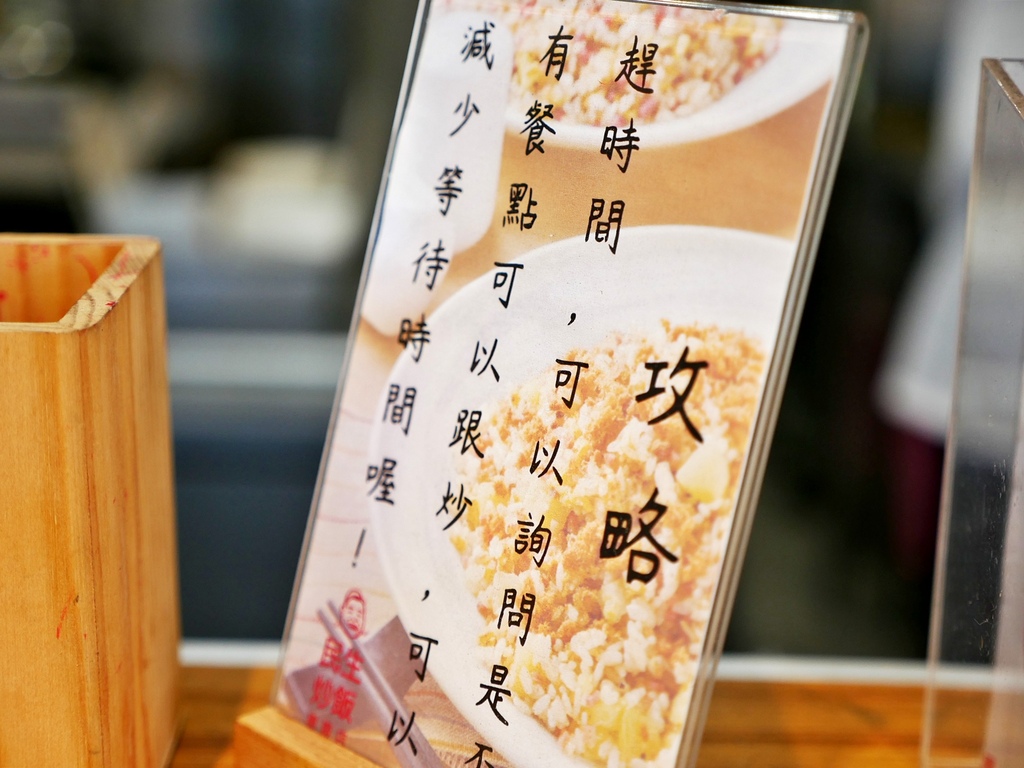 攻略
趕時間,可以詢問是不
有餐點可以跟炒,可以
減少等待時間喔!
民生
炒飯